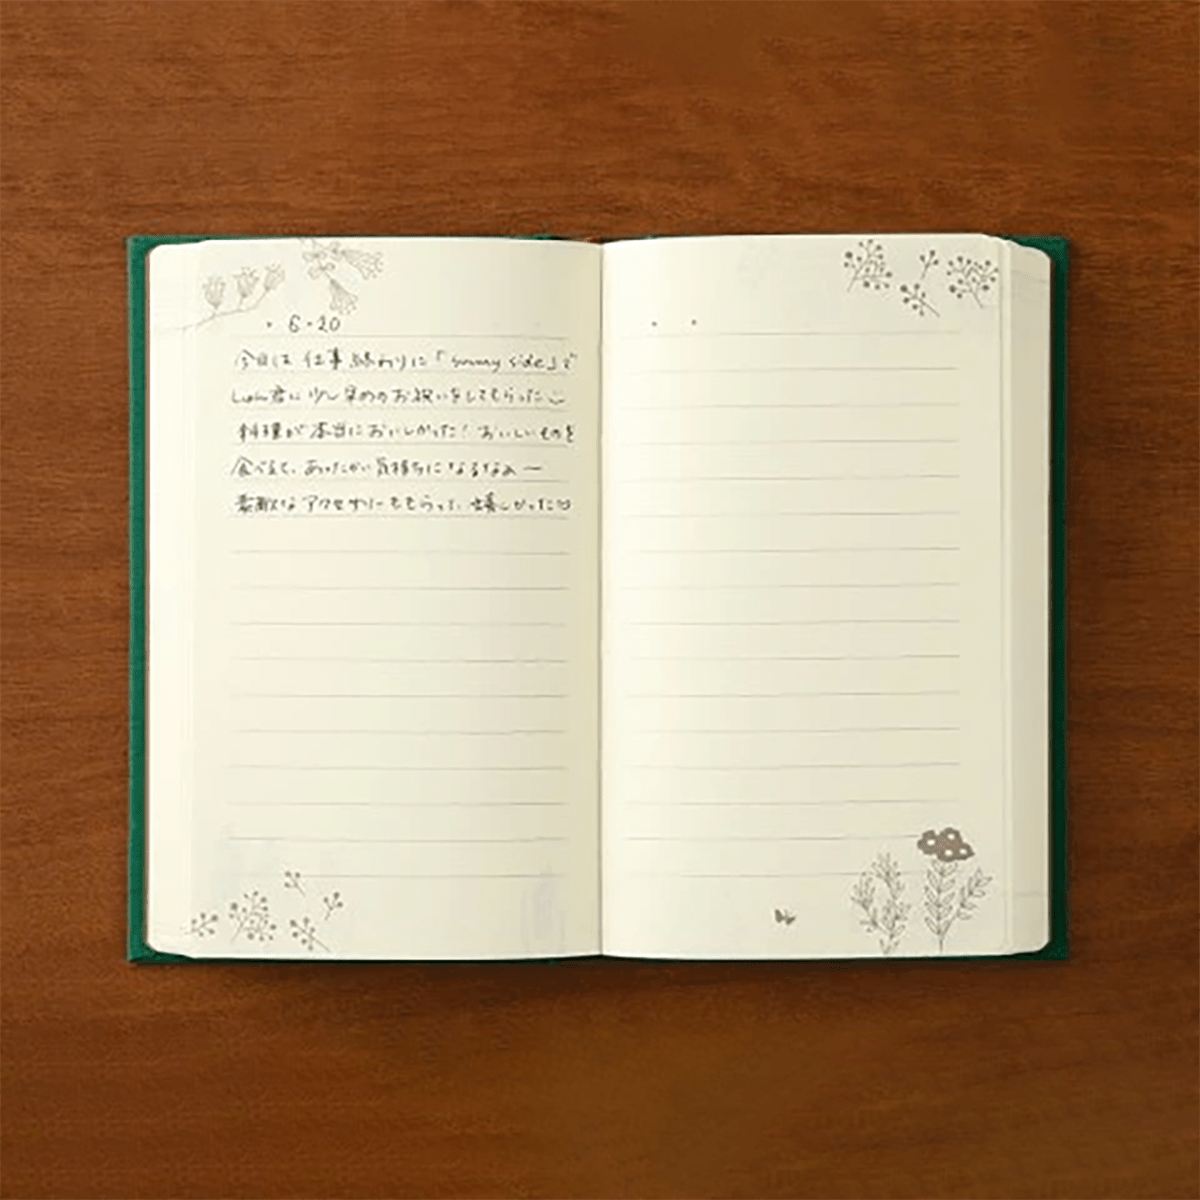 ・6・20
今日は仕事終わりに「sunny side」で
しゅん君に少し早めのお祝いをしてもらった
料理が本当においしかった！おいしいものを
食べると、あったかい気持ちになるなぁー
素敵なアクセサリーももらって、嬉しかった